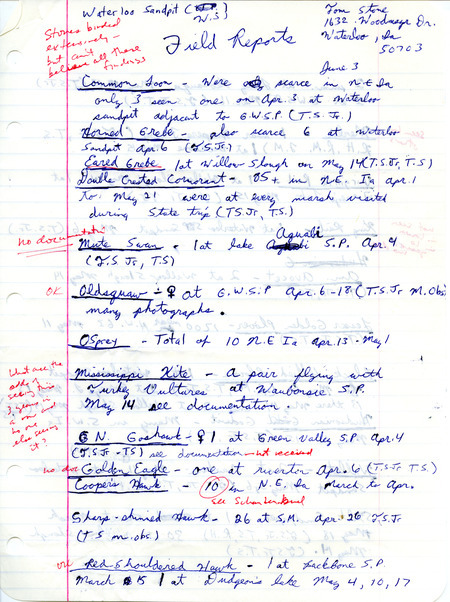 Waterloo Sandpit (
N.S)
Tom Stone
1632 Woodmayr Dr.
Waterloo, Ia
50703
Stones birded
extensively -
but can't
believe all these
Field Reports
June 3
Common Loon - Were scarce in N.E Ia
only 3 seen one on Apr. 3 at Waterloo
sandpit adjacent to G.W.S.P (T.S. Jr.)
Horned Grebe - also scarce 6 at Waterloo
Sandpit Apr. 6 (T.S. Jr.)
Eared Grebe 1 at Willow Slough on May 14 (T.S. Jr, T.S)
Double Crested Cormorant - 85+ in N.E. Ia Apr. 1
to May 21 were at every marsh visited
during State trip (T.S. Jr, T.S.)
no documentation
Aquabi
Mute Swan - 1 at Lake S.P. Apr. 4
(T.S Jr, T.S)
OK
Oldsquaw - ♀ at G.W.S.P Apr. 6-18 (T.S. Jr M.Obs)
many photographs.
Osprey - Total of 10 N.E Ia Apr. 13 - May 1
What are the
odds of
seeing this
no one
else seeing
it?
Mississippi Kite - a pair flying with
Turkey Vultures at Waubonsie S.P.
May 14 see documentation.
G.N. Goshawk - ♀ 1 at Green Valley S.P. Apr. 4
(T.S. Jr - T.S) see documentation - not received
no doc Golden Eagle - one at Riverton Apr. 6 (T.S. Jr T.S.)
Coopers Hawk - 10 in N.E. Ia March to Apr.
see
Sharp-shinned Hawk - 26 at S.M. Apr. 26 T.S. Jr
(T.S m. obs.)
OK Red-Shouldered Hawk - 1 at Backbone S.P.
March 15 1 at Dudgeon's Lake May 4, 10, 17